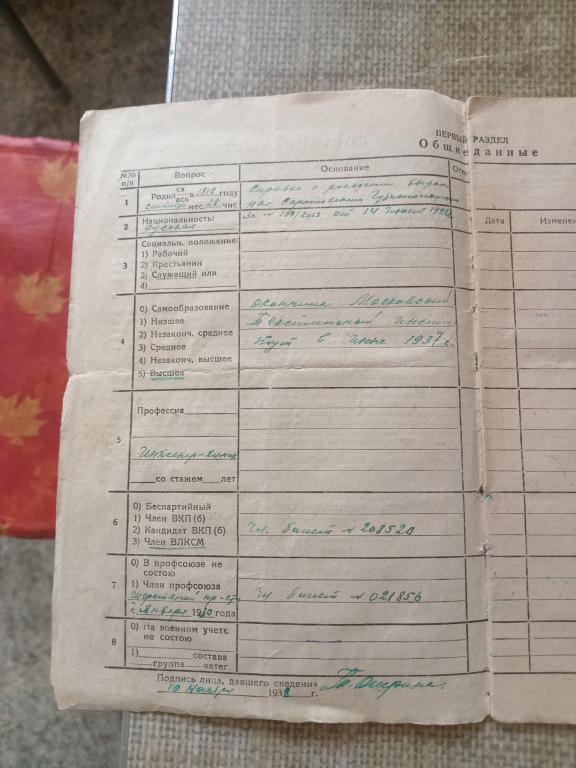 ПЕРВЫЙ РАЗДЕЛ
Общие данные
№№ п/п
Вопрос
Основание
Дата
Изменен
1
Родил ся ась в 1910 году
сентябре мес. 28 чис
Справка о рождении выдан
Саратовским
За № 139/2063 от 14 июня 1922
2
Национальность:
Русская
3
Социальн. положение:
1) Рабочий
2) Крестьянин
3) Служащий или
4)
4
0) Самообразование
1) Низшее
2) Незаконч. среднее
3) Среднее
4) Незаконч. высшее
5) Высшее
окончила Московский
Текстильный Инсти
тут в июне 1937 г.
5
Профессия
Инженер-химик
со стажем лет
6
0) Беспартийный
1) Член ВКП (б)
2) Кандидат ВКП (б)
3) Член ВЛКСМ
Чл. билет № 208520
7
0) В профсоюзе не состою
1) Член профсоюза
Шерстяной пр-сти
с января 1930 года
Чл. билет № 021856
8
0) На военном учете не состою
1) состава
группа катег.
Подпись лица, давшего сведения
10 ноября 1938 г.